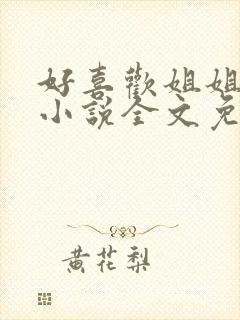 好喜歡姐姐
小說全文免
黃花梨